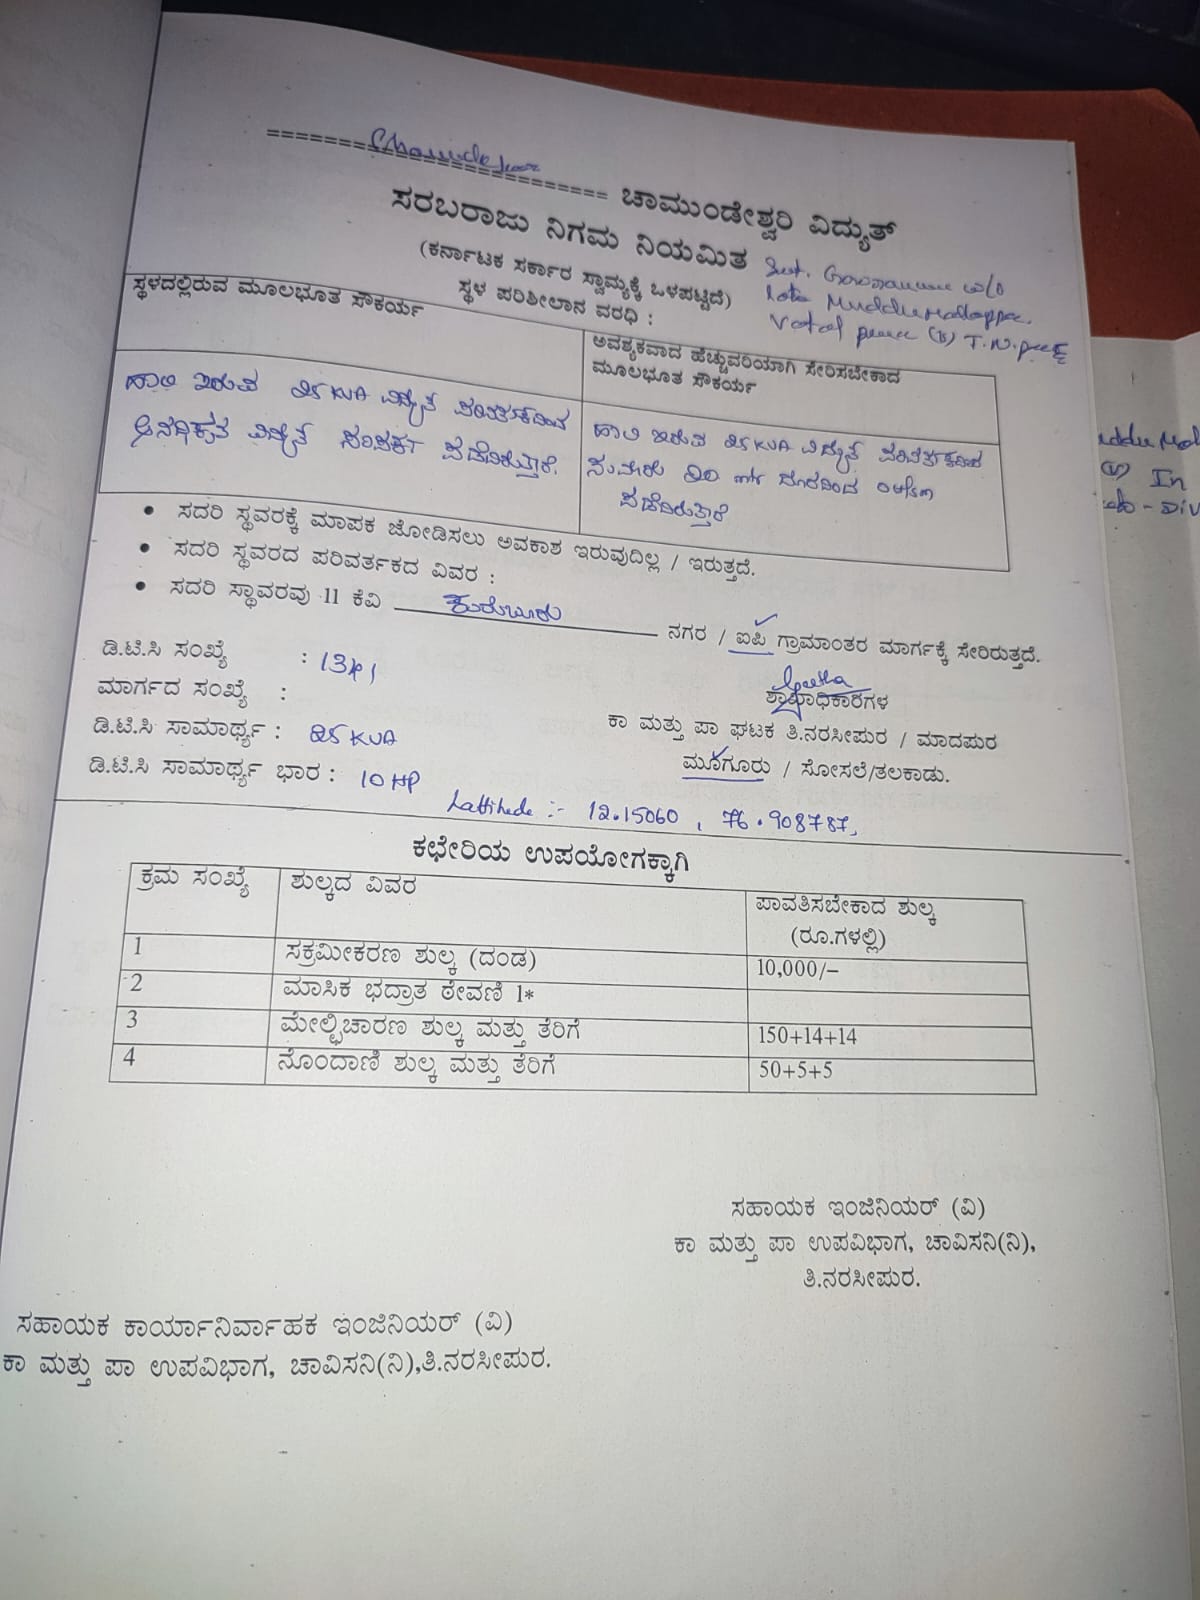 ಚಾಮುಂಡೇಶ್ವರಿ ವಿದ್ಯುತ್
ಸರಬರಾಜು ನಿಗಮ ನಿಯಮಿತ
(ಕರ್ನಾಟಕ ಸರ್ಕಾರ ಸ್ವಾಮ್ಯಕ್ಕೆ ಒಳಪಟ್ಟಿದೆ)
ಸ್ಥಳ ಪರಿಶೀಲಾನ ವರಧಿ :
w/o
late Muddu Mallappa.
Vatal (v) T.N.pura
ಸ್ಥಳದಲ್ಲಿರುವ ಮೂಲಭೂತ ಸೌಕರ್ಯ
ಅವಶ್ಯಕವಾದ ಹೆಚ್ಚುವರಿಯಾಗಿ ಸೇರಿಸಬೇಕಾದ
ಮೂಲಭೂತ ಸೌಕರ್ಯ
ಹಾಲಿ ಇರುವ 25 KVA ವಿದ್ಯುತ್ ಪರಿವರ್ತಕದಿಂದ
ಅನಧಿಕೃತ ವಿದ್ಯುತ್ ಸಂಪರ್ಕ ಪಡೆದಿರುತ್ತಾರೆ.
ಹಾಲಿ ಇರುವ 25 KVA ವಿದ್ಯುತ್ ಪರಿವರ್ತಕದಿಂದ
ಸುಮಾರು 20 mtr ದೂರದಿಂದ
ಪಡೆದಿರುತ್ತಾರೆ
• ಸದರಿ ಸ್ಥವರಕ್ಕೆ ಮಾಪಕ ಜೋಡಿಸಲು ಅವಕಾಶ ಇರುವುದಿಲ್ಲ / ಇರುತ್ತದೆ.
• ಸದರಿ ಸ್ಥವರದ ಪರಿವರ್ತಕದ ವಿವರ :
• ಸದರಿ ಸ್ಥಾವರವು 11 ಕೆವಿ ಕುರುಬೂರು ನಗರ / ಐಪಿ ಗ್ರಾಮಾಂತರ ಮಾರ್ಗಕ್ಕೆ ಸೇರಿರುತ್ತದೆ.
ಡಿ.ಟಿ.ಸಿ ಸಂಖ್ಯೆ :
ಮಾರ್ಗದ ಸಂಖ್ಯೆ :
ಡಿ.ಟಿ.ಸಿ ಸಾಮಾರ್ಥ್ಯ : 25 KVA
ಡಿ.ಟಿ.ಸಿ ಸಾಮಾರ್ಥ್ಯ ಭಾರ : 10 HP
ಶಾಖಾಧಿಕಾರಿಗಳ
ಕಾ ಮತ್ತು ಪಾ ಘಟಕ ತಿ.ನರಸೀಪುರ / ಮಾದಪುರ
ಮೂಗೂರು / ಸೋಸಲೆ/ತಲಕಾಡು.
Lattitude :- 12.15060 , 76.908787,
ಕಛೇರಿಯ ಉಪಯೋಗಕ್ಕಾಗಿ
ಕ್ರಮ ಸಂಖ್ಯೆ ಶುಲ್ಕದ ವಿವರ ಪಾವತಿಸಬೇಕಾದ ಶುಲ್ಕ
(ರೂ.ಗಳಲ್ಲಿ)
1 ಸಕ್ರಮೀಕರಣ ಶುಲ್ಕ (ದಂಡ) 10,000/–
2 ಮಾಸಿಕ ಭದ್ರಾತ ಠೇವಣಿ 1*
3 ಮೇಲ್ಛಿಚಾರಣ ಶುಲ್ಕ ಮತ್ತು ತೆರಿಗೆ 150+14+14
4 ನೊಂದಾಣಿ ಶುಲ್ಕ ಮತ್ತು ತೆರಿಗೆ 50+5+5
ಸಹಾಯಕ ಇಂಜಿನಿಯರ್ (ವಿ)
ಕಾ ಮತ್ತು ಪಾ ಉಪವಿಭಾಗ, ಚಾವಿಸನಿ(ನಿ),
ತಿ.ನರಸೀಪುರ.
ಸಹಾಯಕ ಕಾರ್ಯಾನಿರ್ವಾಹಕ ಇಂಜಿನಿಯರ್ (ವಿ)
ಕಾ ಮತ್ತು ಪಾ ಉಪವಿಭಾಗ, ಚಾವಿಸನಿ(ನಿ),ತಿ.ನರಸೀಪುರ.